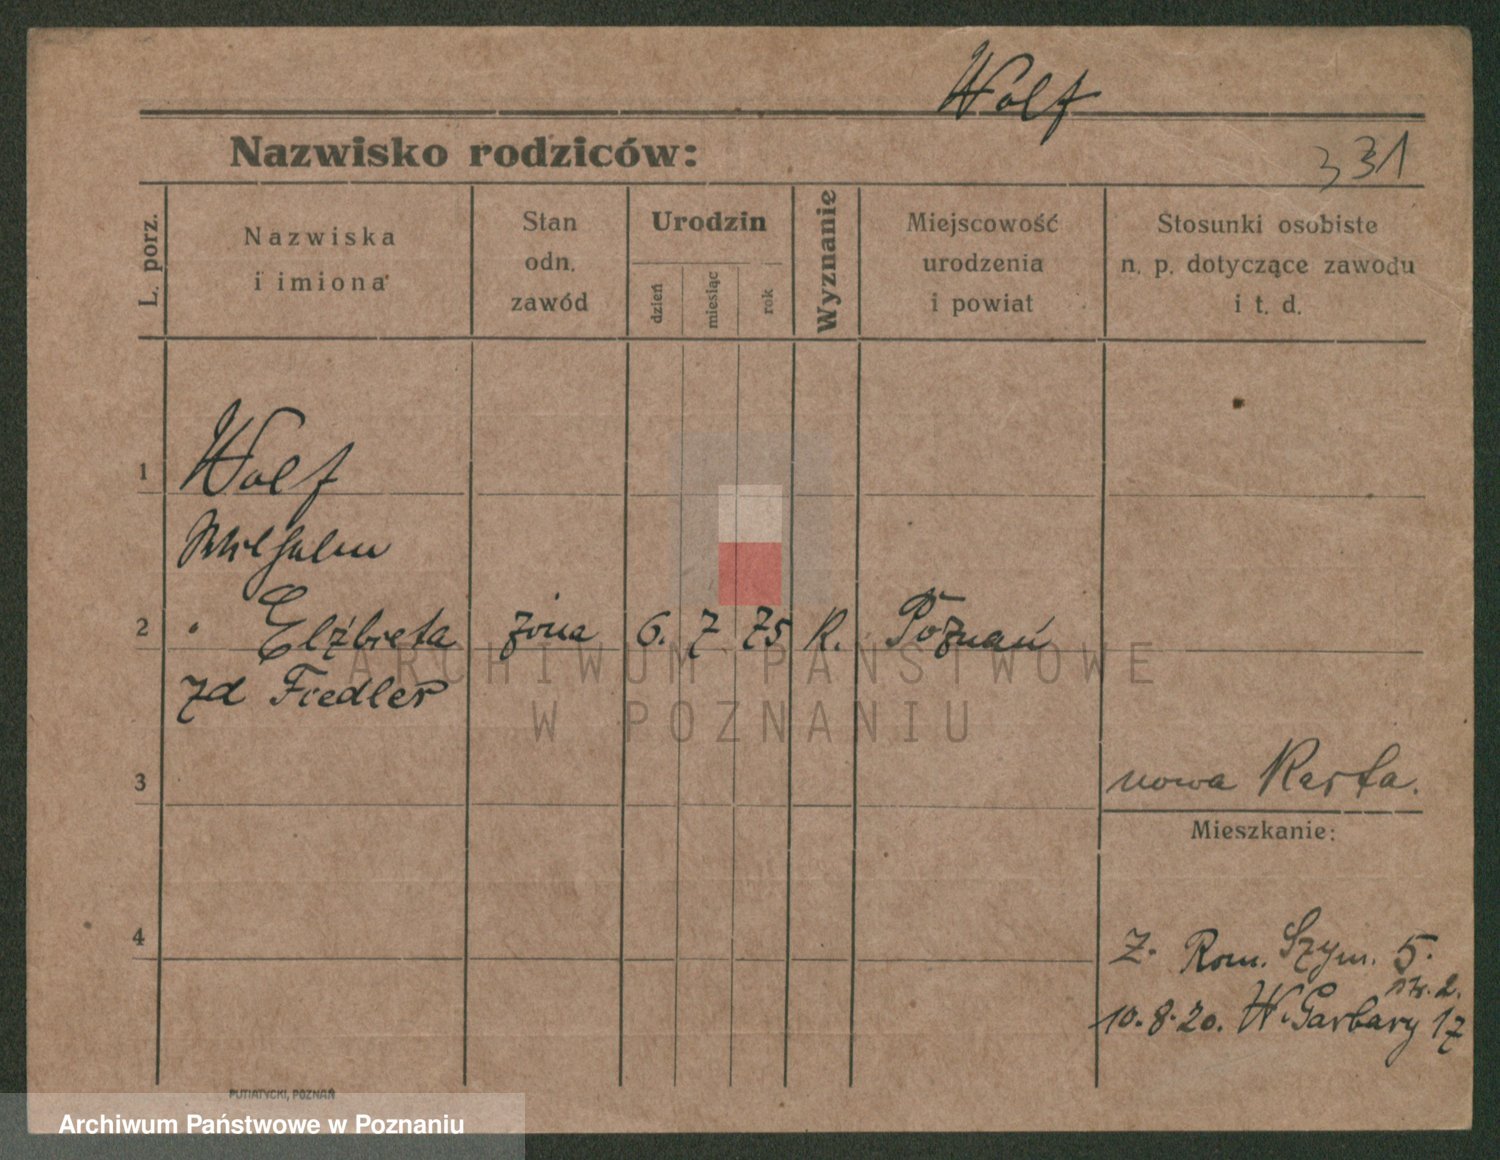 Wolf
Nazwisko rodziców:
331
L. porz.
Nazwiska
i imiona
Stan
odn.
zawód
Urodzin
dzień
miesiąc
rok
Wyznanie
Miejscowość
urodzenia
i powiat
Stosunki osobiste
n. p. dotyczące zawodu
i t. d.
1
Wolf
Wilhelm
2 " Elżbieta żona 6. 7 75 R. Poznań
zd Fiedler
ARCHIWUM PAŃSTWOWE
W POZNANIU
3
nowa Karta.
Mieszkanie:
4
Z. Rom. Szym. 5.
10.8.20. W. Garbary 17
PUTIATYCKI, POZNAŃ
Archiwum Państwowe w Poznaniu